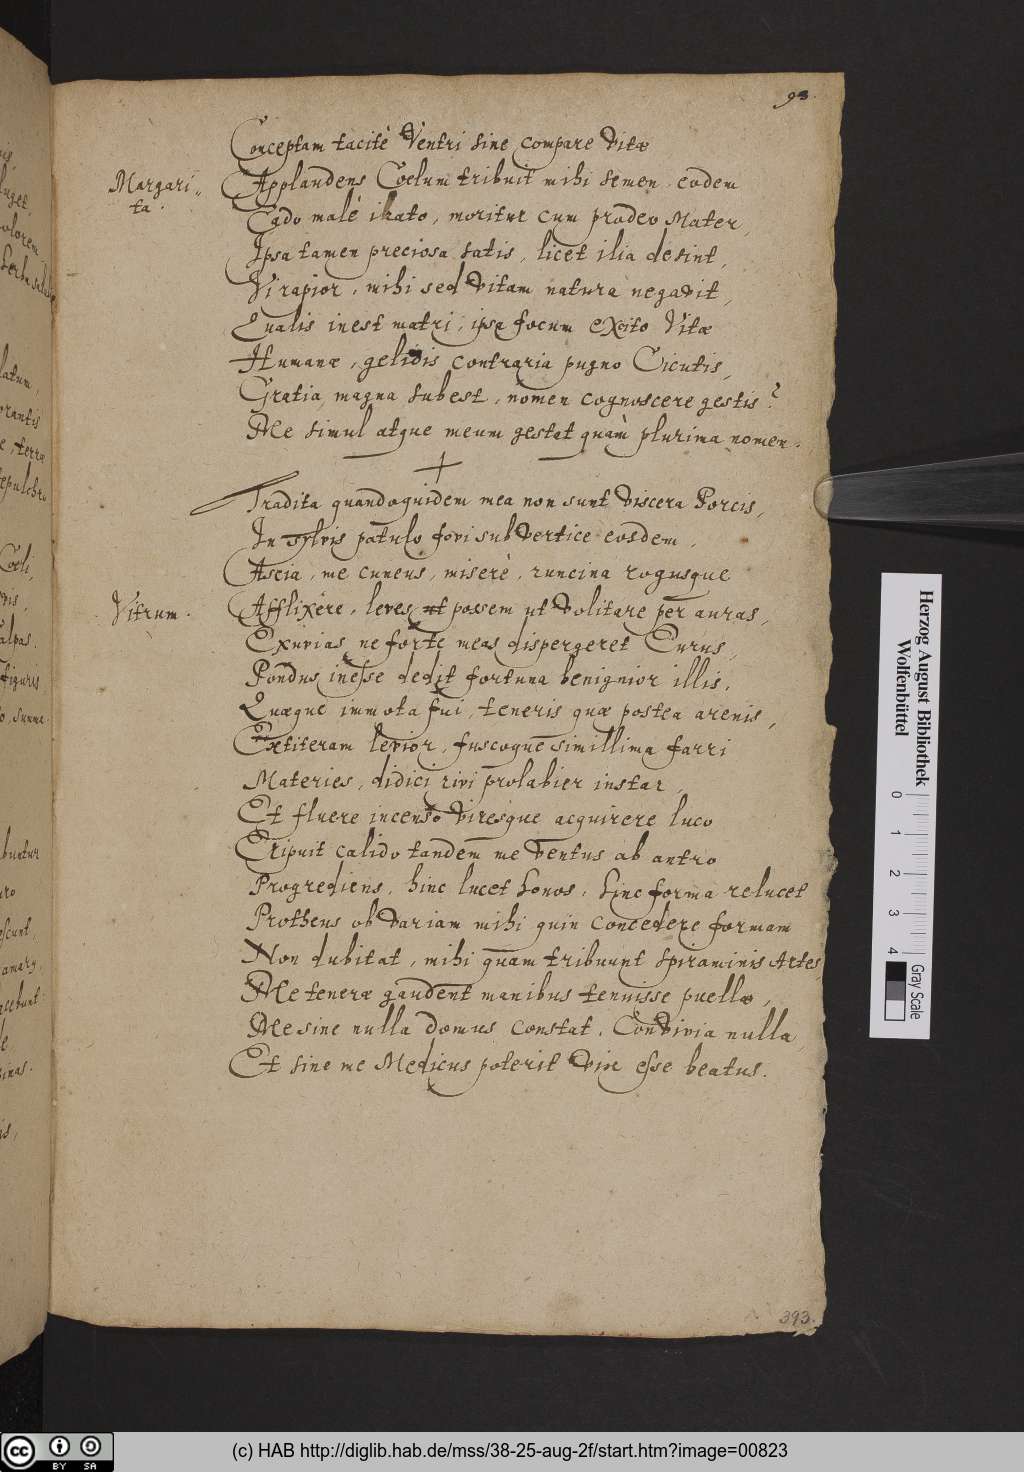 93.
Conceptam tacitè Ventri sine compare Vitæ
Margari„
ta.
Applaudens Coelum tribuit mihi semen, eodem
Cado malè irato, moritur cum prodeo Mater,
Ipsa tamen preciosa satis, licet ilia desint,
Vi rapior, mihi sed Vitam natura negavit,
Qualis inest matri, ipsa focum excito Vitæ
Humanæ, gelidis contraria pugno Cicutis,
Gratia magna subest, nomen cognoscere gestis?
Me simul atque meum gestat quàm plurima nomen.
Tradita quandoquidem mea non sunt Viscera Porcis,
In Sylvis patulo fovi sub Vertice eosdem,
Ascia, me cuneus, miserè, runcina rogusque
Vitrum.
Afflixêre, leves ut possem ut Volitare per auras,
Exuvias ne forte meas dispergeret Eurus,
Pondus inesse dedit fortuna benignior illis,
Quæque immota fui, teneris quæ postea arenis,
Extiteram levior, fuscoque simillima farri
Materies, didici rivi prolabier instar,
Et fluere incenso Viresque acquirere luco
Eripuit calido tandem me Ventus ab antro
Progrediens, hinc lucet honos, hinc forma relucet
Protheus ob Variam mihi quin concedere formam
Non dubitat, mihi quam tribuunt spiraminis Artes,
Me teneræ gaudent manibus tenuisse puellæ,
Me sine nulla domus constat, Convivia nulla,
Et sine me Medicus poterit Vix esse beatus.
393.
Herzog August Bibliothek
Wolfenbüttel
0 1 2 3 4
Gray Scale
cc BY SA
(c) HAB http://diglib.hab.de/mss/38-25-aug-2f/start.htm?image=00823